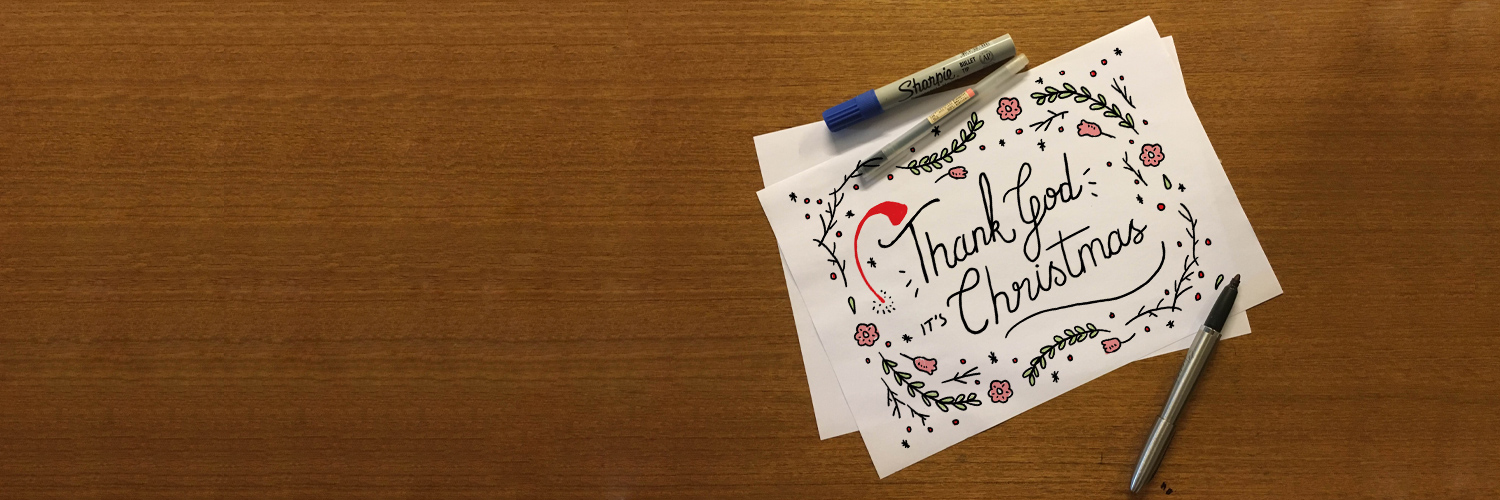 Sharpie
BULLET
TIP
(AP)
Thank God
IT'S Christmas